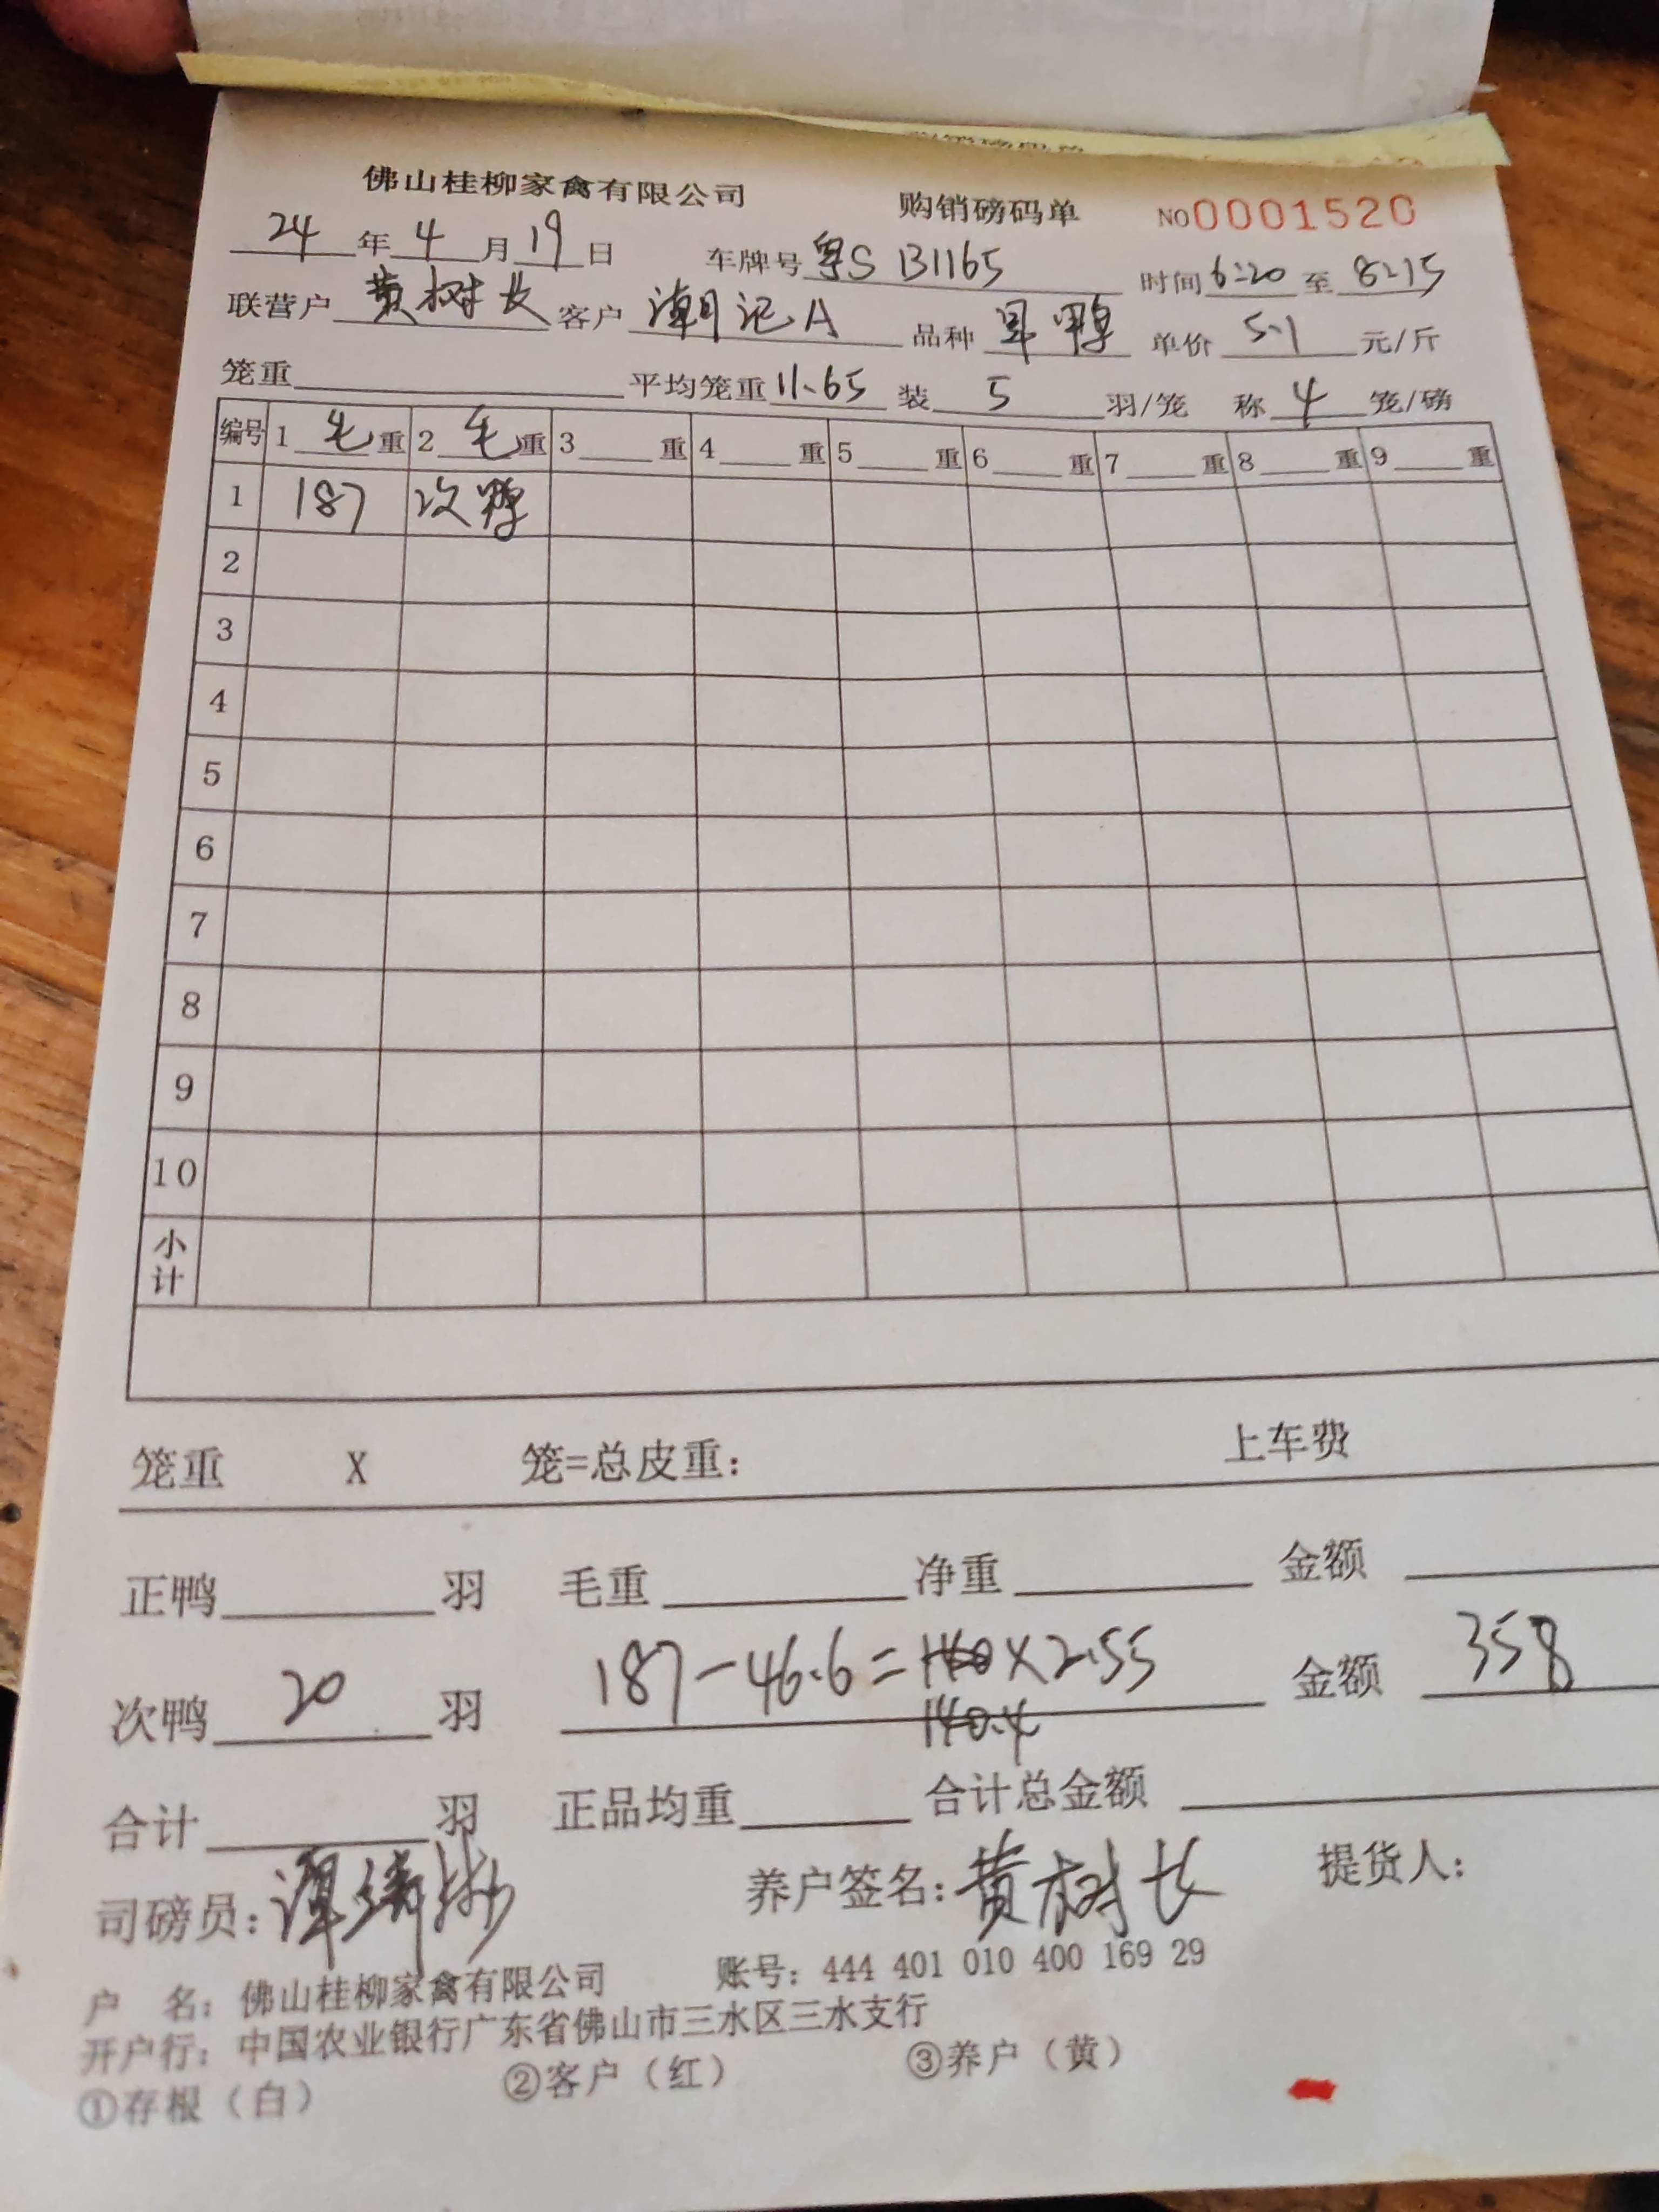 佛山桂柳家禽有限公司 购销磅码单 NO0001520
24年4月19日 车牌号粤S B1165 时间6:20至8:15
联营户黄树长 客户潮记A 品种 鸭 单价5.1元/斤
笼重 平均笼重11.65 装5羽/笼 称4笼/磅
编号 1毛重 2毛重 3重 4重 5重 6重 7重 8重 9重
1 187 次鸭
2
3
4
5
6
7
8
9
10
小计
笼重 X 笼=总皮重: 上车费
正鸭 羽 毛重 净重 金额
次鸭20羽 187-46.6=140×2.55 金额358
140.4
合计 羽 正品均重 合计总金额
司磅员:谭 养户签名:黄树长 提货人:
户 名:佛山桂柳家禽有限公司 账号:444 401 010 400 169 29
开户行:中国农业银行广东省佛山市三水区三水支行
①存根(白) ②客户(红) ③养户(黄)